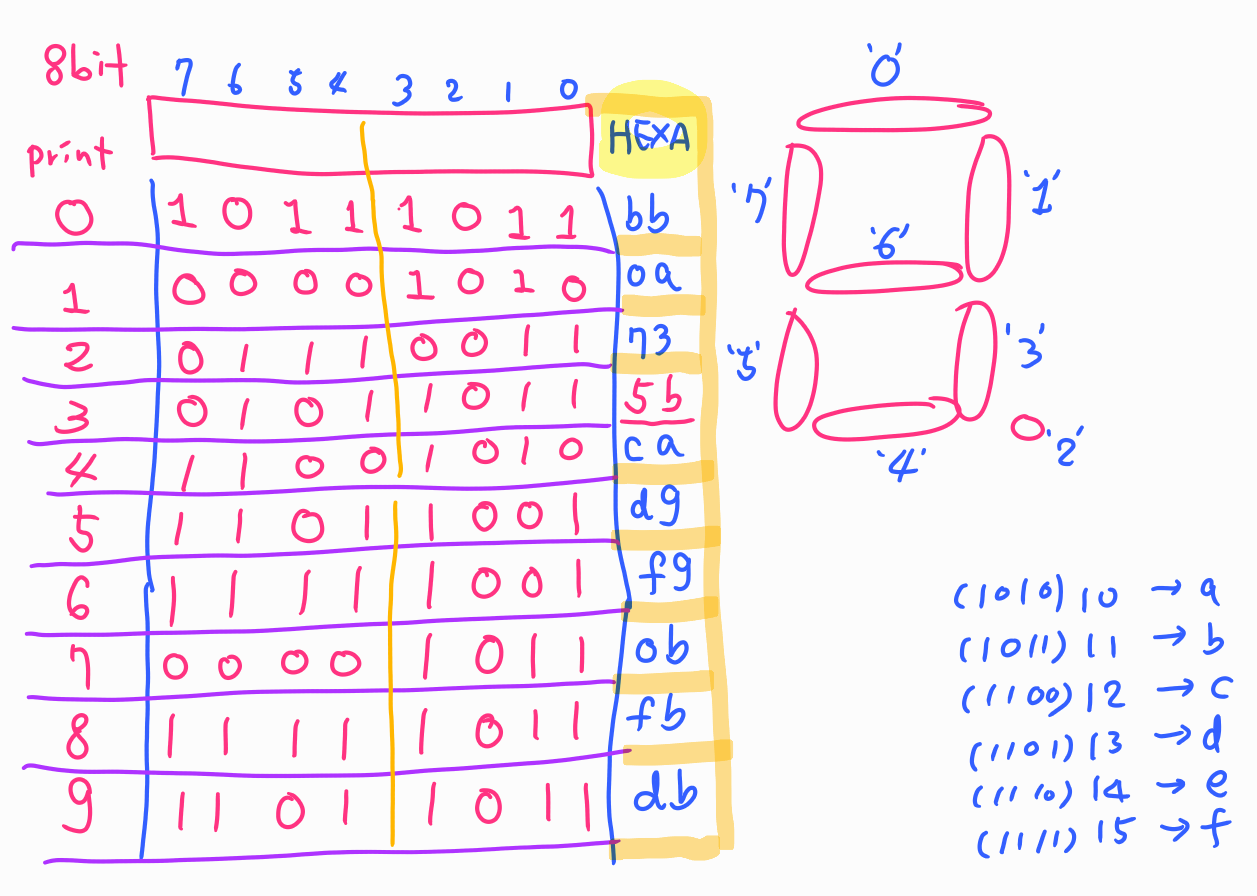 8bit 7 6 5 4 3 2 1 0
print HEXA
0 1 0 1 1 1 0 1 1 bb
1 0 0 0 0 1 0 1 0 0a
2 0 1 1 1 0 0 1 1 73
3 0 1 0 1 1 0 1 1 5b
4 1 1 0 0 1 0 1 0 ca
5 1 1 0 1 1 0 0 1 d9
6 1 1 1 1 1 0 0 1 f9
7 0 0 0 0 1 0 1 1 0b
8 1 1 1 1 1 0 1 1 fb
9 1 1 0 1 1 0 1 1 db
'0'
'7' '1'
'6'
'5' '3'
'4' '2'
(1010) 10 → a
(1011) 11 → b
(1100) 12 → c
(1101) 13 → d
(1110) 14 → e
(1111) 15 → f